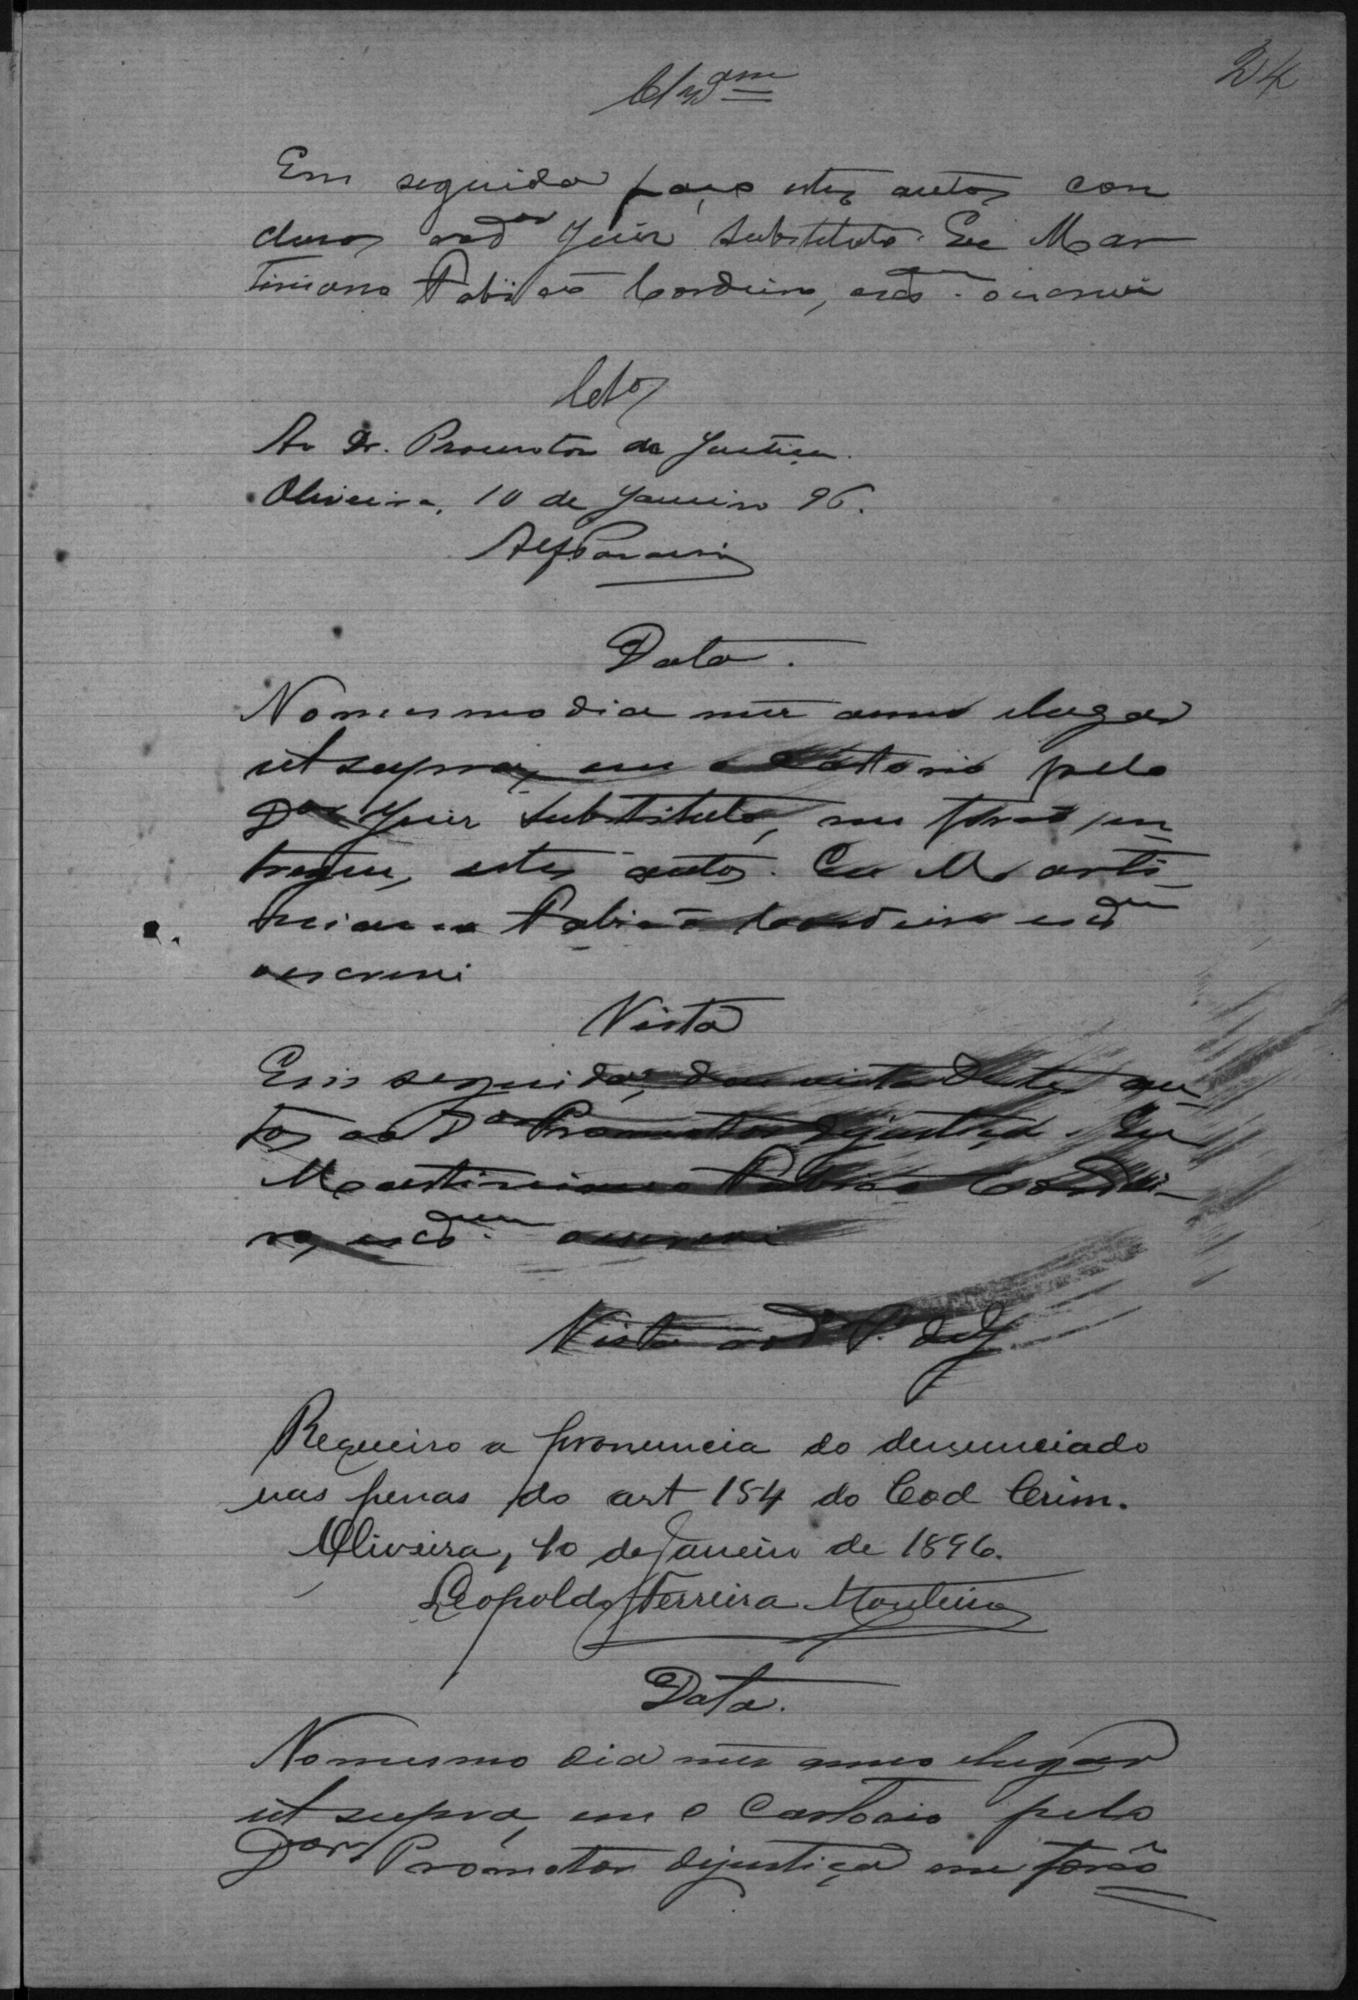 24
Clzam
Em seguida faço estes autos con
clusos aod.or Juiz Substituto. Eu Mar
tiniano Fabião Cordeiro, escm. o escrevi
Clos
Ao Dr. Promotor da Justiça.
Oliveira, 10 de Janeiro 96.
Data.
No mesmo dia mez anno elugar
ut supra, em o Cartorio pelo
Dor Juiz Substituto, me forão en
tregue, estes autos. Eu Marti
niano Fabião Cordeiro escm
oescrevi
Vista
Em seguida, dou vista destes au
tos ao Dor Promotor dejustiça. Eu
Martiniano Fabião Cordei
ro, escm. oescrevi
Vista aod P. de J
Requeiro a pronuncia do denunciado
nas penas do art 154 do Cod Crim.
Oliveira, 10 de Janeiro de 1896.
Leopoldo Ferreira Monteiro
Data.
No mesmo dia mez anno elugar
ut supra, em o Cartorio pelo
Dor. Promotor dejustiça me forão